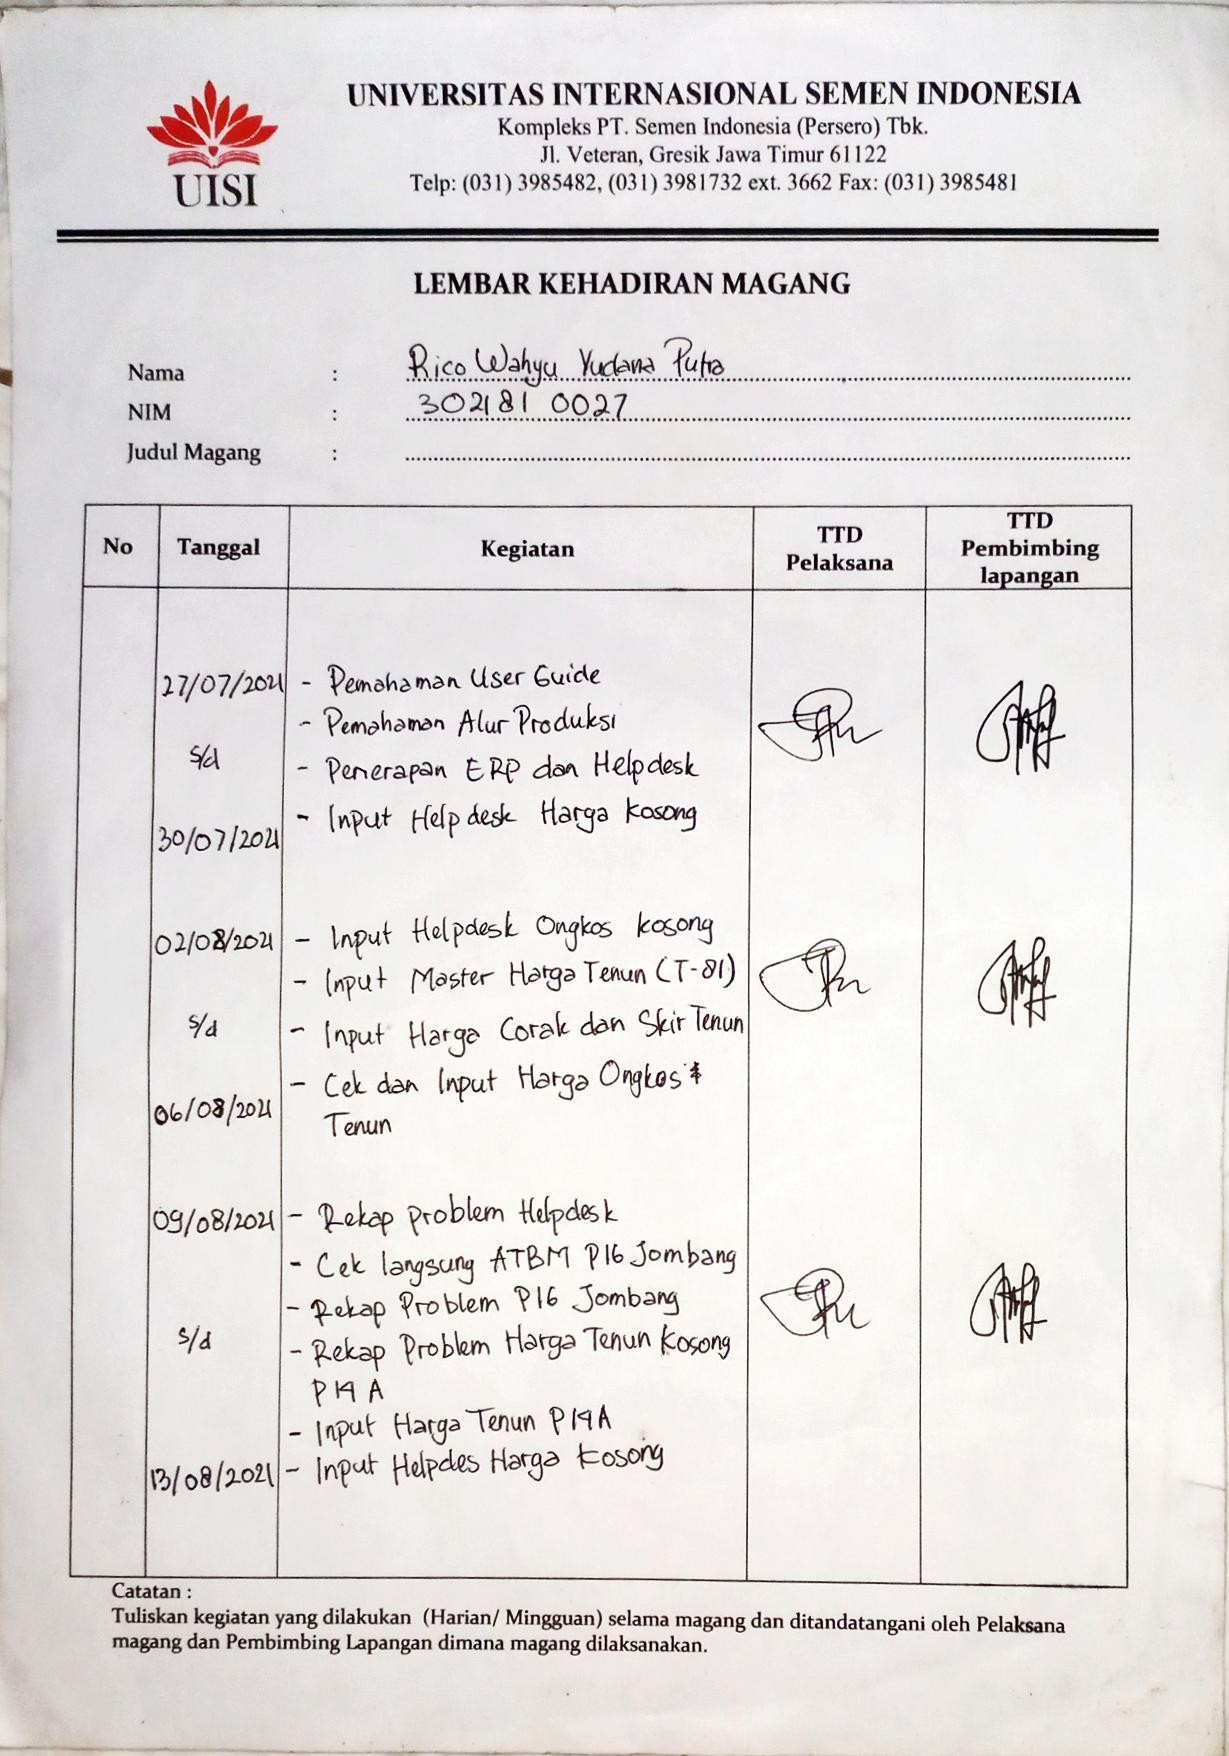 UISI
UNIVERSITAS INTERNASIONAL SEMEN INDONESIA
Kompleks PT. Semen Indonesia (Persero) Tbk.
Jl. Veteran, Gresik Jawa Timur 61122
Telp: (031) 3985482, (031) 3981732 ext. 3662 Fax: (031) 3985481
LEMBAR KEHADIRAN MAGANG
Nama : Rico Wahyu Yudana Putra
NIM : 302181 0027
Judul Magang :
No Tanggal Kegiatan TTD Pelaksana TTD Pembimbing lapangan
27/07/2021 - Pemahaman User Guide
- Pemahaman Alur Produksi
s/d
- Penerapan ERP dan Helpdesk
- Input Helpdesk Harga Kosong
30/07/2021
02/08/2021 - Input Helpdesk Ongkos kosong
- Input Master Harga Tenun (T-81)
s/d - Input Harga Corak dan Skir Tenun
- Cek dan Input Harga Ongkos
06/08/2021 Tenun
09/08/2021 - Rekap problem Helpdesk
- Cek langsung ATBM P16 Jombang
- Rekap Problem P16 Jombang
s/d - Rekap Problem Harga Tenun Kosong
P19 A
- Input Harga Tenun P19A
13/08/2021 - Input Helpdes Harga Kosong
Catatan :
Tuliskan kegiatan yang dilakukan (Harian/ Mingguan) selama magang dan ditandatangani oleh Pelaksana
magang dan Pembimbing Lapangan dimana magang dilaksanakan.